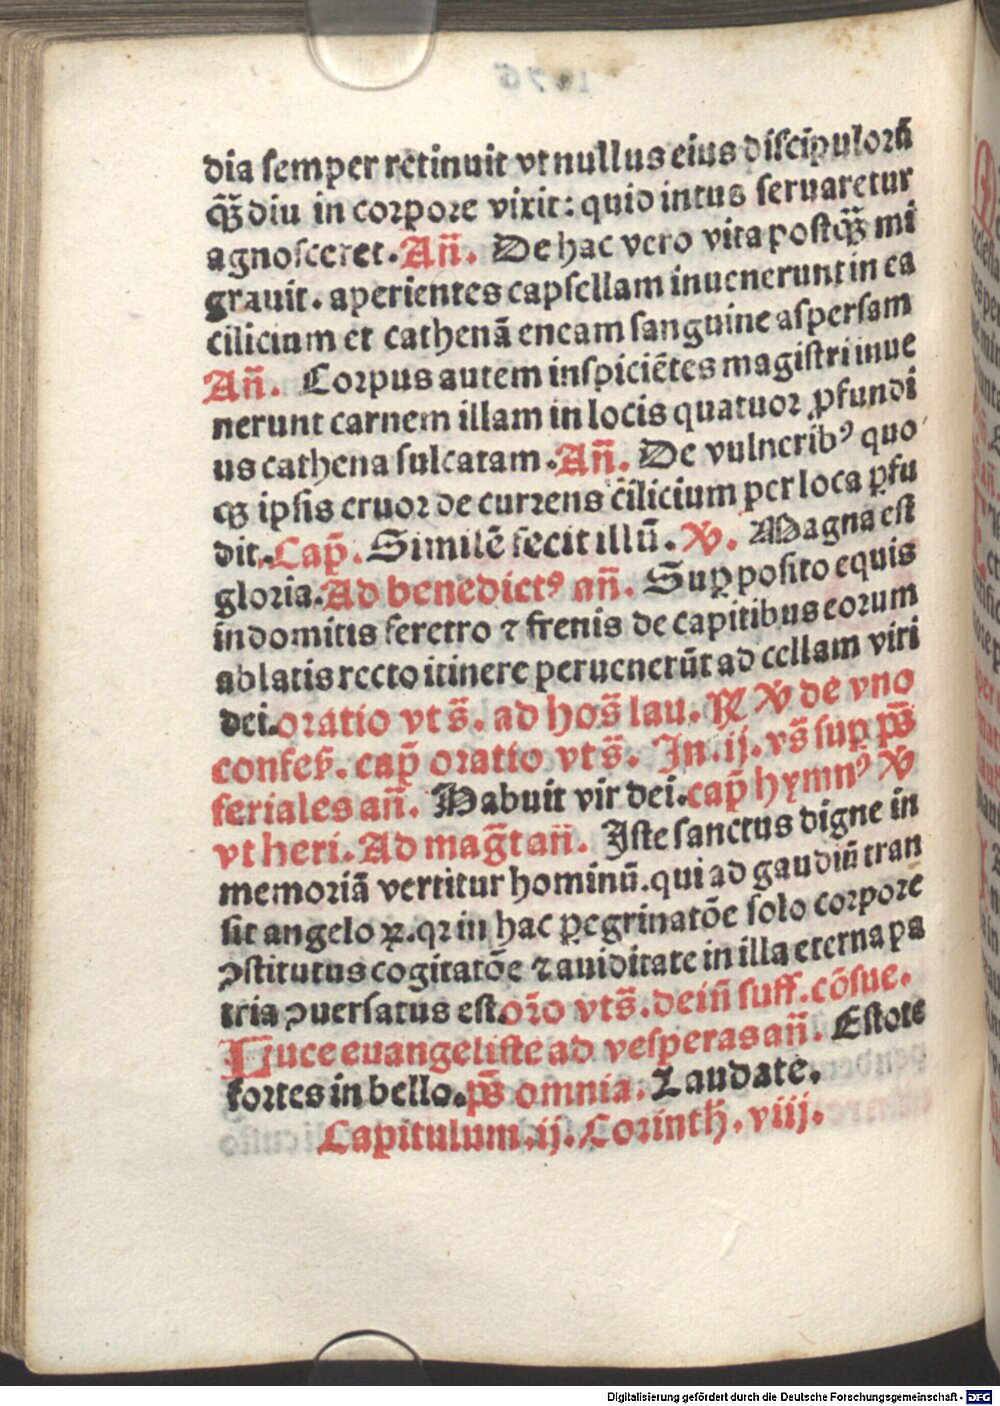 dia semper retinuit vt nullus eius discipulorū
qȝ̄ diu in corpore vixit: quid intus seruaretur
agnosceret. Añ. De hac vero vita postqȝ̄ mi
grauit. aperientes capsellam inuenerunt in ea
cilicium et cathenā eneam sanguine aspersam
Añ. Corpus autem inspiciētes magistri inue
nerunt carnem illam in locis quatuor ꝓfundi
us cathena sulcatam. Añ. De vulneribꝰ quo
qȝ ipsis cruor de currens cilicium per loca ꝑfu
dit. Cap̄. Similē fecit illū. ℣. Magna est
gloria. Ad benedictꝰ añ. Suꝑ posito equis
indomitis feretro ⁊ frenis de capitibus eorum
ablatis recto itinere peruenerūt ad cellam viri
dei. oratio vts̄. ad hos̄ lau. ℟ ℣ de vno
confeß. cap̄ oratio vts̄. In. ij. vs̄ suꝑ ps̄
feriales añ. Habuit vir dei. cap̄ hymnꝰ ℣
vt heri. Ad mag̃t añ. Iste sanctus digne in
memoriā vertitur hominū. qui ad gaudiū tran
sit angeloꝝ. qꝛ in hac ꝑegrinatōe solo corpore
ꝯstitutus cogitatōe ⁊ auiditate in illa eterna pa
tria ꝯuersatus est. orō vts̄. deiñ suff. cōsue.
Luce euangeliste ad vesperas añ. Estote
fortes in bello. ps̄ omnia. Laudate.
Capitulum. ij. Corinth̄. viij.
Digitalisierung gefördert durch die Deutsche Forschungsgemeinschaft - DFG